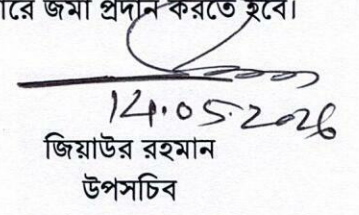 রে জমা প্রদান করতে হবে।
14.05.2026
জিয়াউর রহমান
উপসচিব